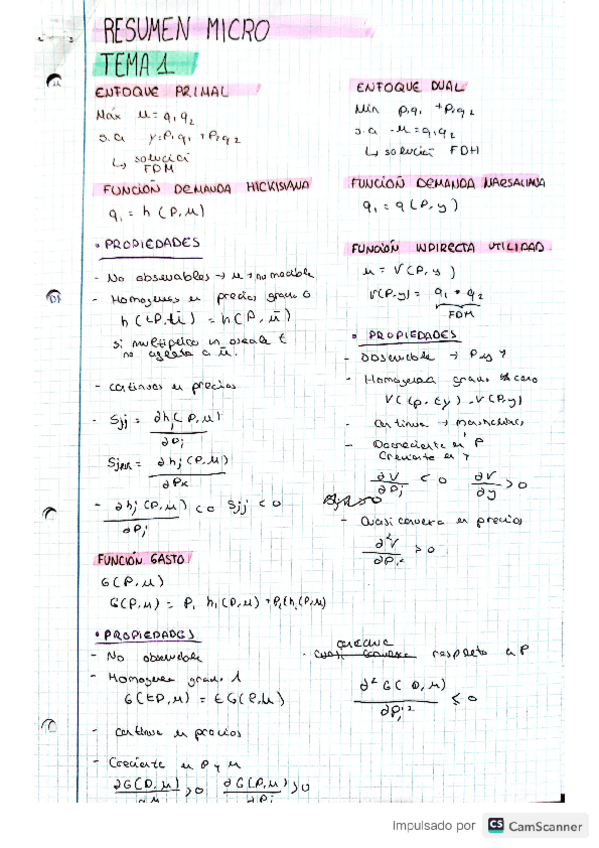 RESUMEN MICRO
TEMA 1
ENFOQUE PRIMAL
Máx u = q1 q2
s.a y = P1 q1 + P2 q2
↳ solució
FDM
FUNCIÓN DEMANDA HICKSIANA
q1 = h (P, u)
• PROPIEDADES
- No observables → u + no medible
- Homogéneas en precios grado 0
h (tP, ū) = h(P, ū)
si multiplico in escala t
no afecta a ū.
- continuas en precios
- Sjj = ∂hj (P, u)
∂Pj
Sjk = ∂hj (P, u)
∂Pk
- ∂hj (P, u) < 0 Sjj < 0
∂Pj
FUNCIÓN GASTO
G(P, u)
G(P, u) = P1 h1(P, u) +
• PROPIEDADES
- No observable
- Homogenea grado 1
G(tP, u) = t G(P, u)
- continua en precios
- Creciente en P y u
∂G(P, u) > 0 ∂G(P, u) > 0
ENFOQUE DUAL
Min P1q1 + P2q2
s.a u = q1 q2
↳ solució FDH
FUNCIÓN DEMANDA MARSALIANA
q1 = q (P, y)
FUNCIÓN INDIRECTA UTILIDAD
u = V (P, y)
V(P, y) = q1 * q2
FDM
• PROPIEDADES
- Observable → P y Y
- Homogenea grado cero
V(tp, ty) = V(P, y)
- Continua →
- Decreciente en P
Creciente en Y
∂V < 0 ∂V > 0
∂Pj ∂y
- Quasi convexa en precios
∂²V > 0
respecto a P
∂²G(P, u) ≤ 0
∂Pj²
Impulsado por CS CamScanner